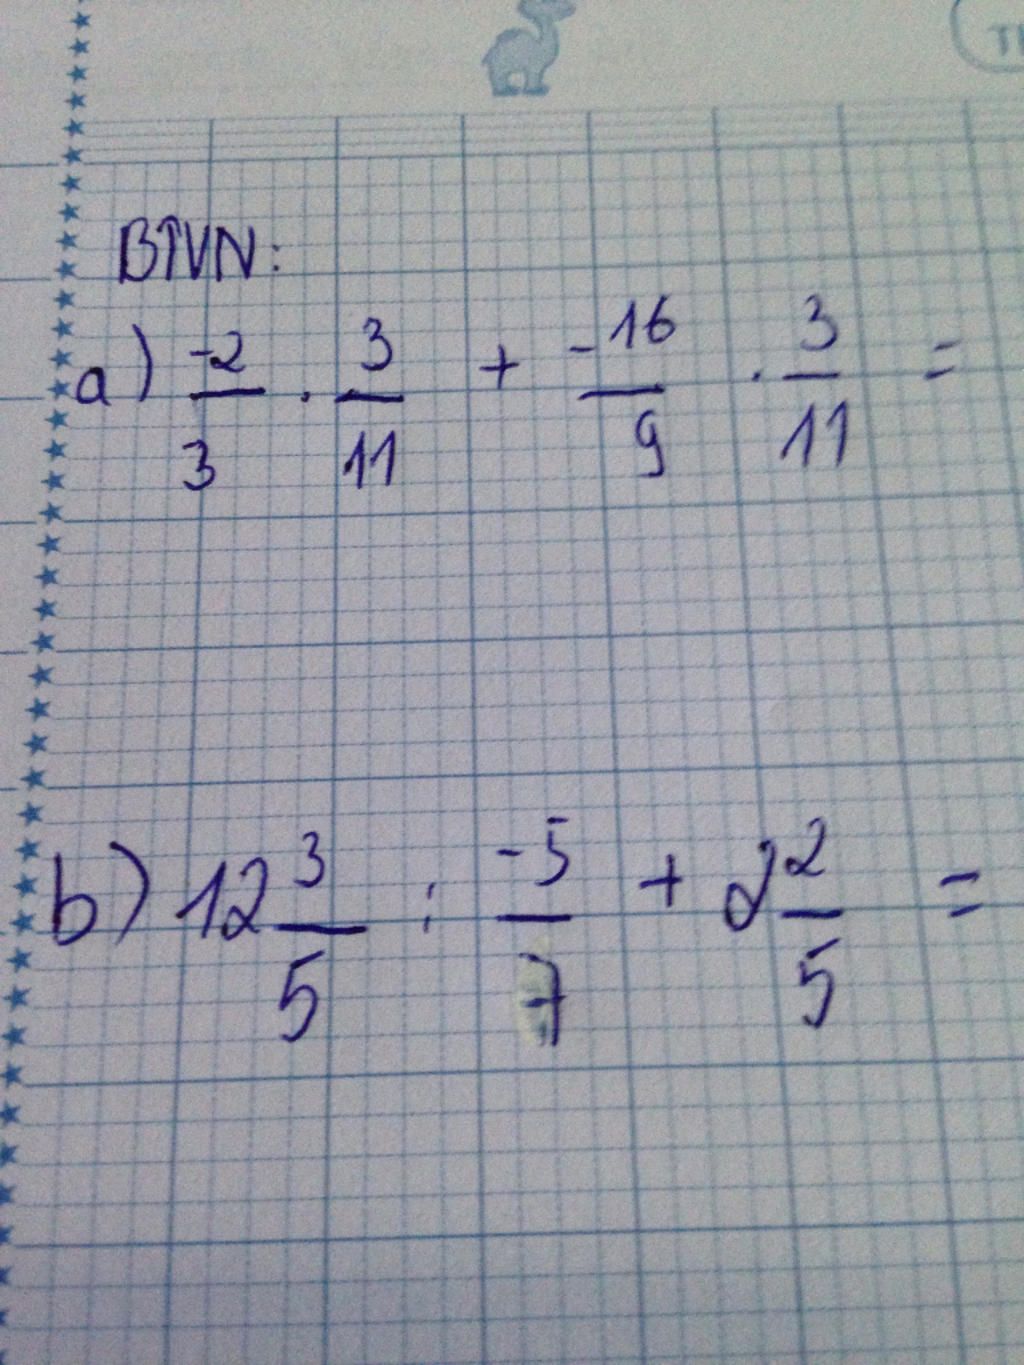 TH
BTVN:
a) -2/3 . 3/11 + -16/9 . 3/11 =
b) 12 3/5 : -5/7 + 2 2/5 =